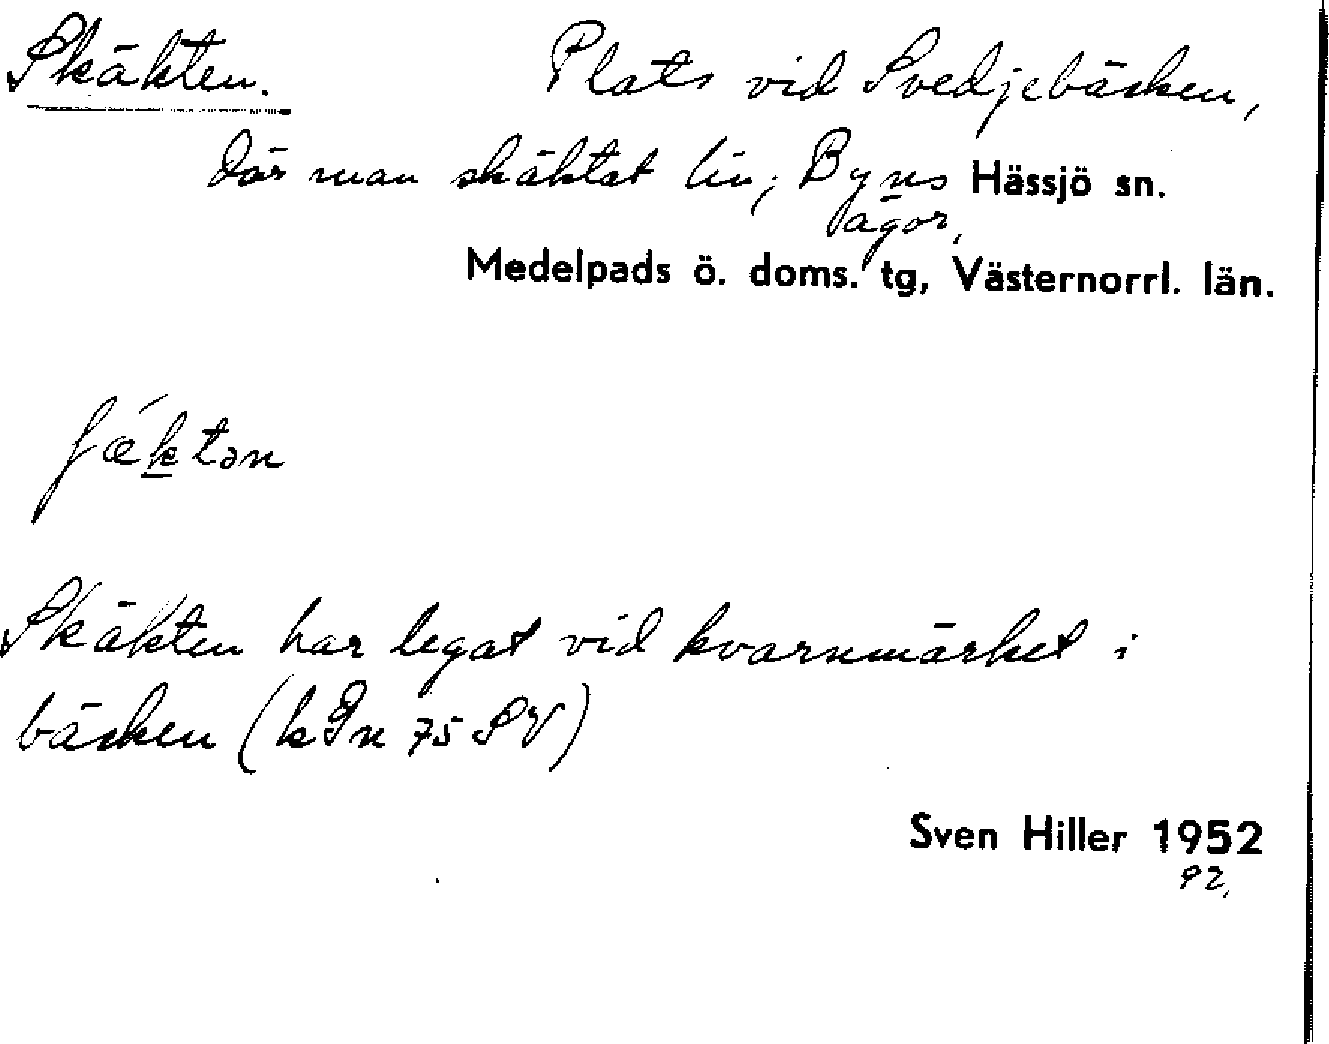 Skäkten. Plats vid Svedjebäcken,
där man skäktat lin; Byns Hässjö sn.
ägor,
Medelpads ö. doms. tg, Västernorrl. län.
ʃæktən
Skäkten har legat vid kvarnmärket i
bäcken (k 75 SV)
Sven Hiller 1952
92,